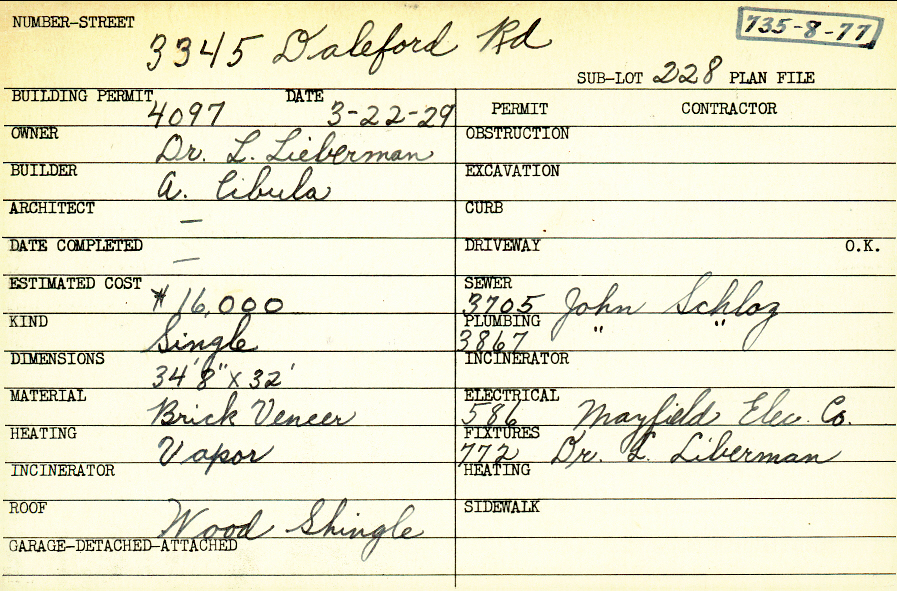 NUMBER-STREET 3345 Daleford Rd 735-8-77
SUB-LOT 228 PLAN FILE
BUILDING PERMIT 4097 DATE 3-22-29
OWNER Dr. L. Lieberman
BUILDER A. Cibula
ARCHITECT —
DATE COMPLETED —
ESTIMATED COST $16,000
KIND Single
DIMENSIONS 34'8" x 32'
MATERIAL Brick Veneer
HEATING Vapor
INCINERATOR
ROOF Wood Shingle
GARAGE-DETACHED-ATTACHED
PERMIT CONTRACTOR
OBSTRUCTION
EXCAVATION
CURB
DRIVEWAY O.K.
SEWER 3705 John Schloz
PLUMBING 3867 " "
INCINERATOR
ELECTRICAL 586 Mayfield Elec. Co.
FIXTURES 772 Dr. L. Liberman
HEATING
SIDEWALK